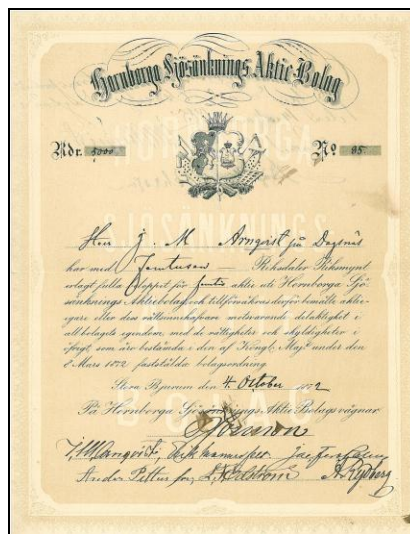 Hornborga Sjösänknings Aktie Bolag
Rdr. 5000
No 85.
HORNBORGA
SJÖSÄNKNINGS
Herr J. M. Arnqvist på Dagsnäs
har med Femtusen Riksdaler Riksmynt
erlagt fulla beloppet för femte aktie uti Hornborga Sjö
sänknings Aktiebolag och tillförsäkras derför bemälte aktie-
egare eller dess rättsinnehafvare motsvarande delaktighet i
all bolagets egendom, med de rättigheter och skyldigheter i
öfrigt, som äro bestämda i den af Kongl. Maj:t under den
8 Mars 1872 faststälda bolagsordning.
Stora Bjurum den 4 October 1872
På Hornborga Sjösänknings Aktie Bolags vägnar
Anders Petter A. Rydberg